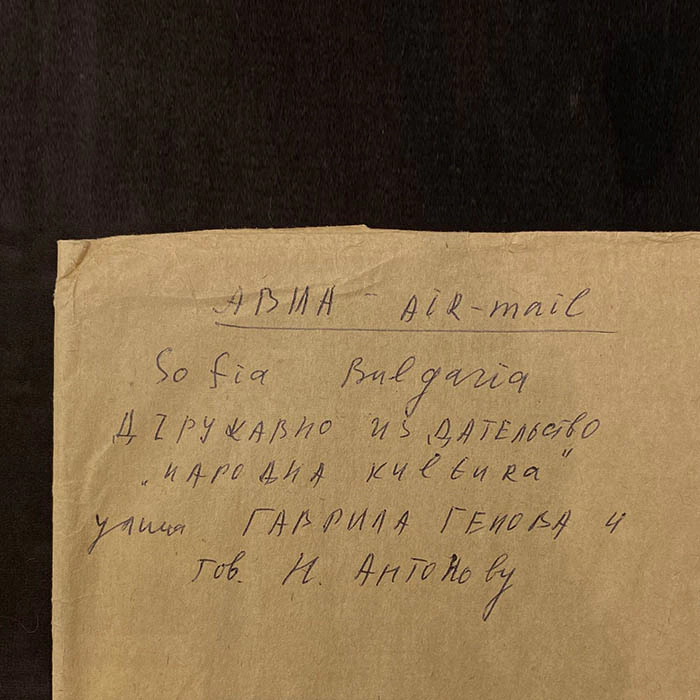 АВИА - AiR-mail
Sofia Bulgaria
ДЪРУЖАВНО ИЗДАТЕЛЬСТВО
„НАРОДНА КУЛЬТURA"
улица ГАВРИЛА ГЕНОВА 4
тов. Н. АНТОНОву